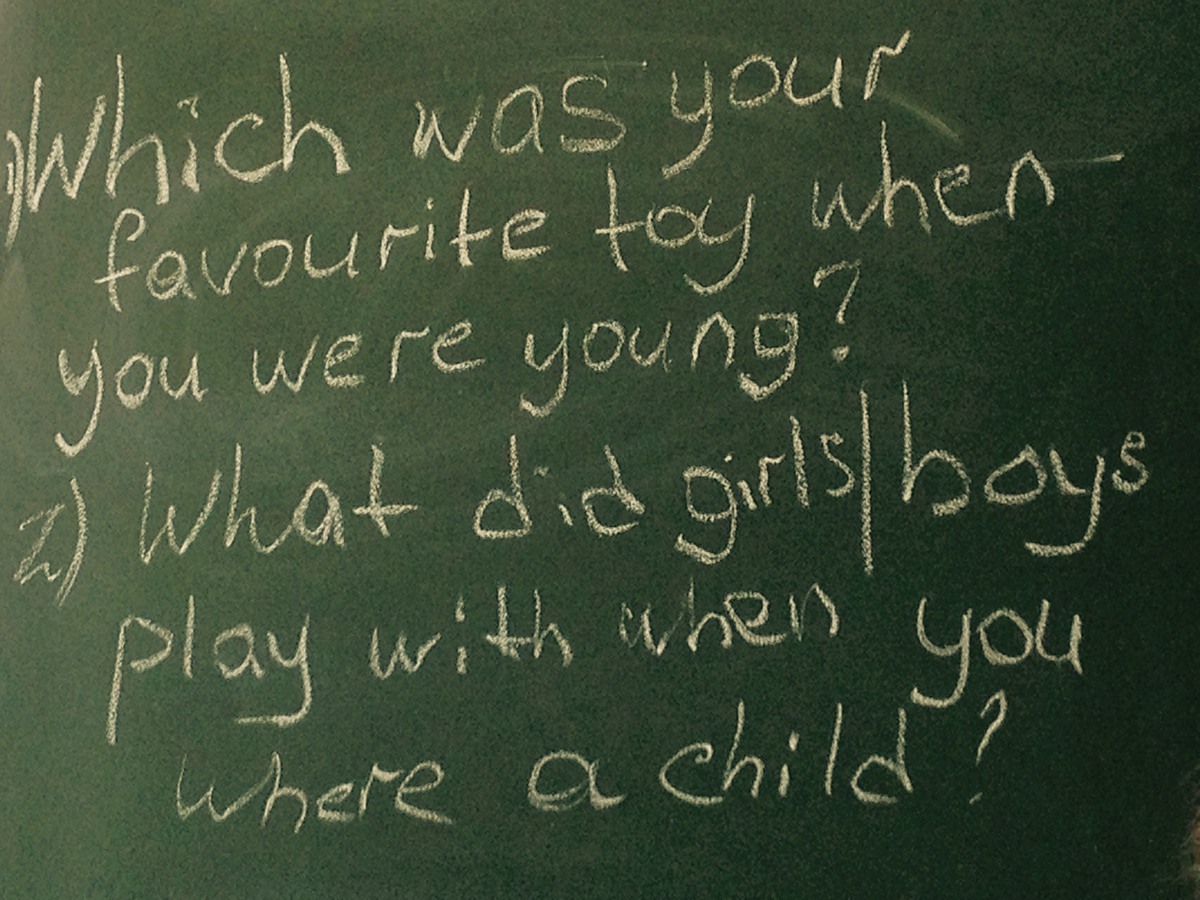 1) Which was your
favourite toy when
you were young?
2) What did girls|boys
play with when you
where a child?